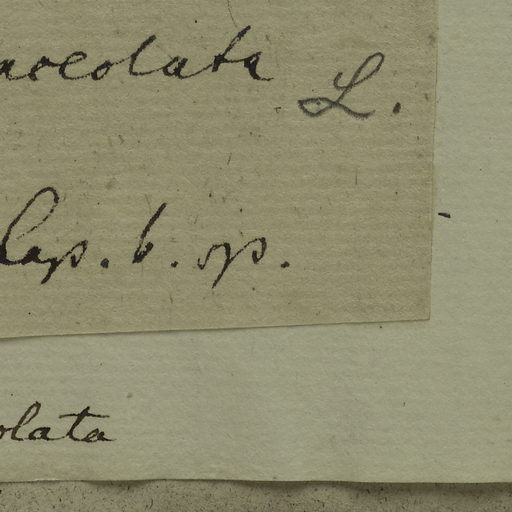 aceolata L.
Cap. b. sp.
olata